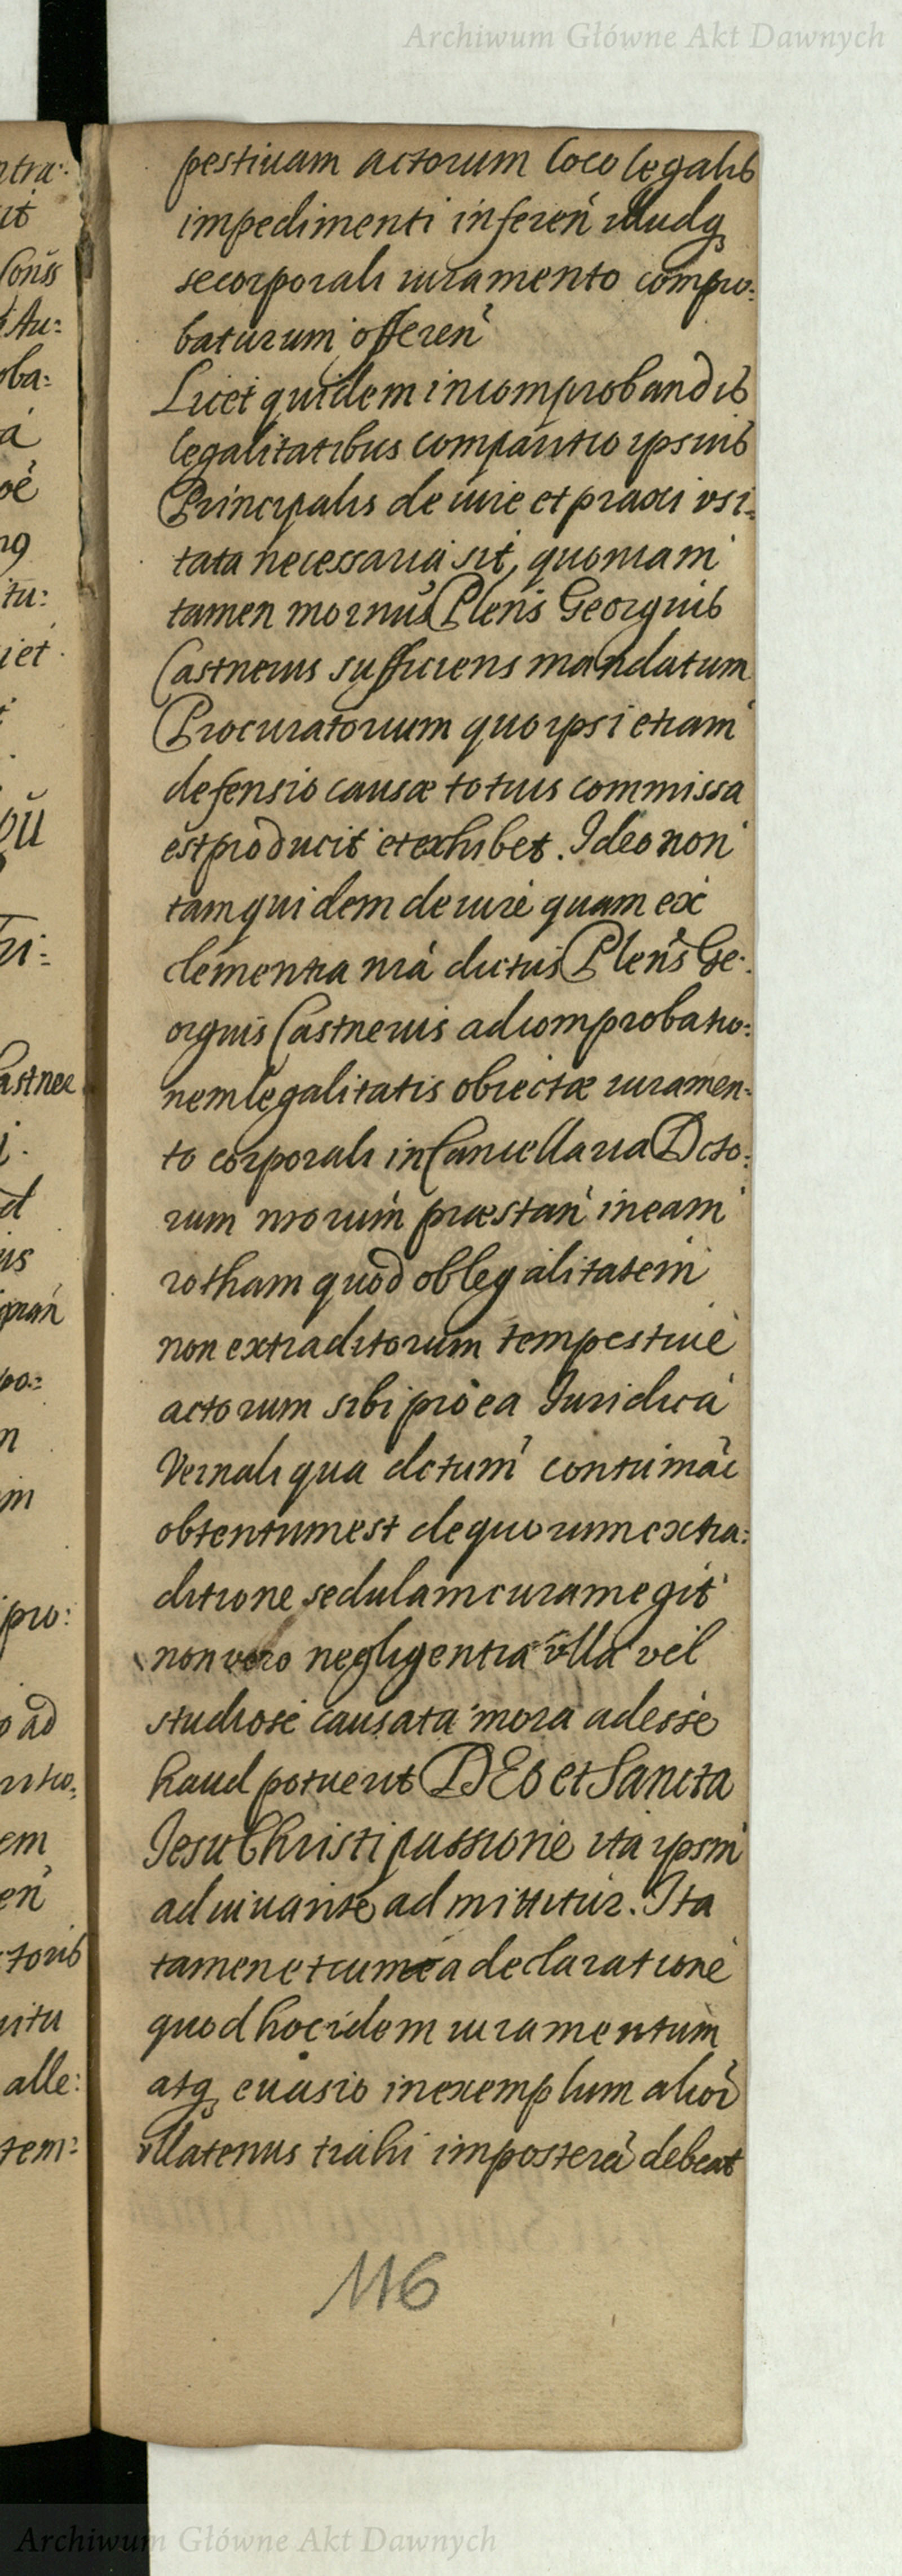 Archiwum Główne Akt Dawnych
pestivam actorum loco legalis
impedimenti inferen illudq
se corporali iuramento compro:
baturum offeren
Licet quidem in comprobandis
legalitatibus comparitio ipsius
Principalis de iure et praxi vsi:
tata necessaria sit, quoniam
tamen mornus Plens Georgius
Castnerus sufficiens mandatum
Procuratorium quo ipsi etiam
defensio causæ totius commissa
est producit et exhibet. Ideo non
tam quidem de iure quam ex
clementia nra dictus Plens Ge:
orgius Castnerus ad comprobatio:
nem legalitatis obiectæ iuramen:
to corporali in Cancellaria Dcto:
rum nrorum præstan in eam
rotham quod ob legalitatem
non extraditorum tempestive
actorum sibi pro ea Juridica
Vernali qua dctum contumac
obtentum est de quorum extra:
ditione sedulam curam egit
non vero negligentia vlla vel
studiose causata mora adesse
haud potuerit DEo et Sancta
Jesu Christi passione ita ipsm
adiuvante admittitur. Ita
tamen et cum ea declaratione
quod hoc idem iuramentum
atq evasio in exemplum alior
vllatenus trahi imposterú debeat
116
ntra:
ut
Conss
Au:
oba:
á
oé
tu:
iet
ri:
astner
d
us
m
pro:
o ad
em
en
toris
uitu
alle:
tem:
Archiwum Główne Akt Dawnych